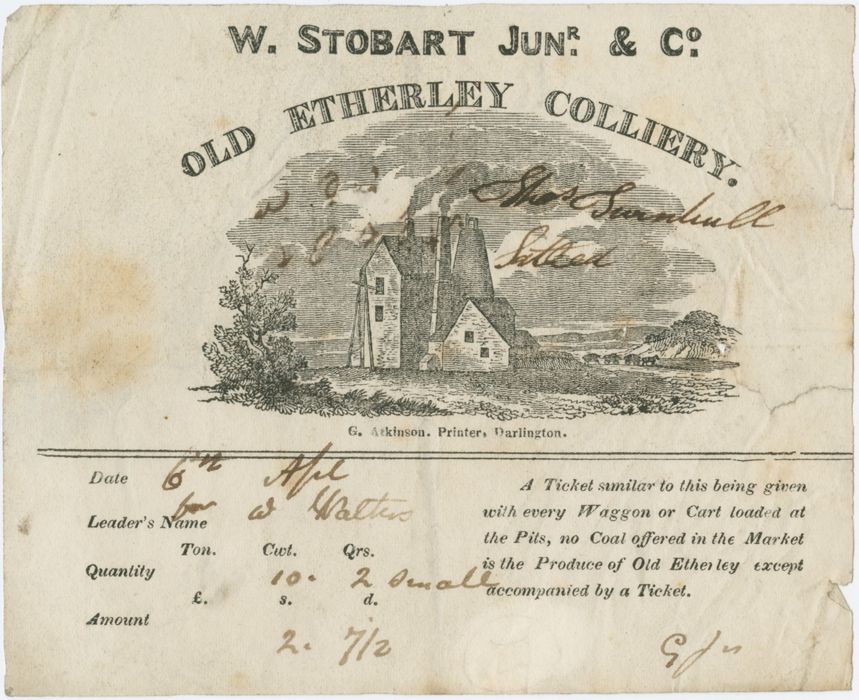 W. STOBART JUNR. & CO.
OLD ETHERLEY COLLIERY.
Thos Turnbull
Settled
G. Atkinson. Printer, Darlington.
Date 6th Apl
Leader's Name W Walters
Ton. Cwt. Qrs.
Quantity 10. 2 small
£. s. d.
Amount 2. 7 1/2
A Ticket similar to this being given
with every Waggon or Cart loaded at
the Pits, no Coal offered in the Market
is the Produce of Old Etherley except
accompanied by a Ticket.